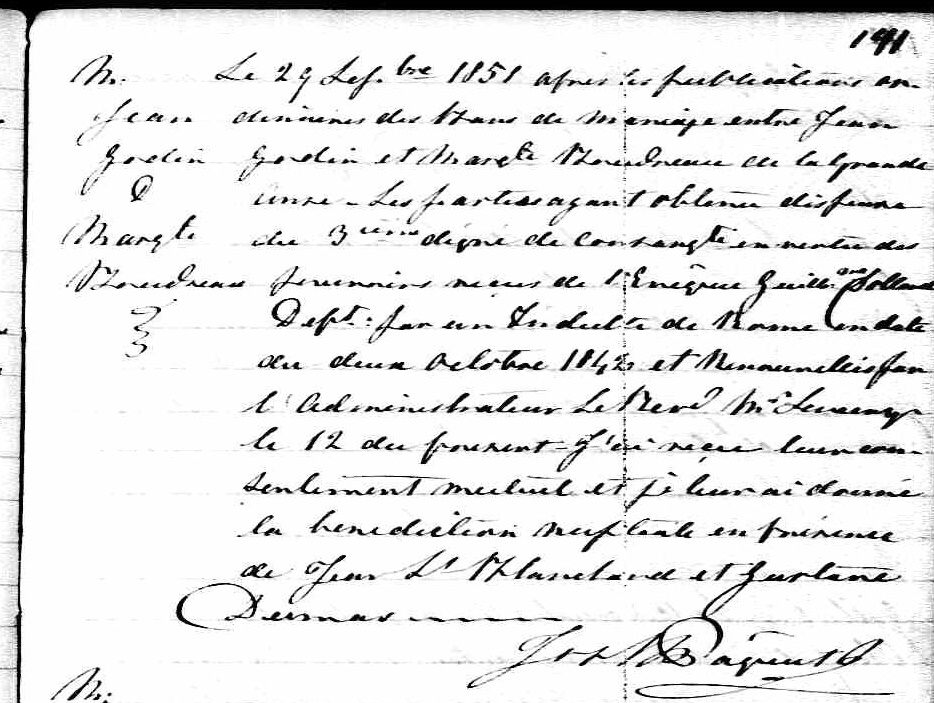 141
M.
Jean
Godin
&
Margte
Boudreau
Le 29 Sep.bre 1851 apres les publications or-
dinaires des bans de mariage entre Jean
Godin et Margte Boudreau de la Grande
anse - Les parties ayant obtenu dispense
du 3ième dégré de consangte en vertu des
pouvoirs reçus de l'Evêque Guillme Dollard
Dept: par un Indulte de Rome en date
du deux octobre 1842 et Renouvellés par
l'administrateur Le Revd Mr
le 12 du present J'ai reçu leur con-
sentement mutuel et je leur ai donné
la benediction nuptiale en présence
de Jean Bt Blanchard et Gustave
Dumas
Jos M Paquet
M.